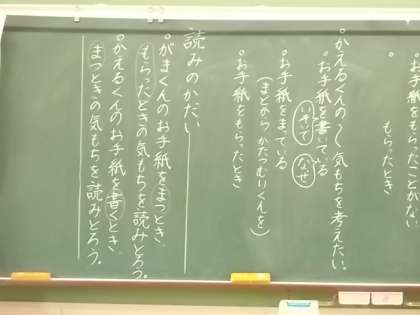 お手紙をもらったことがない
もらったとき
。かえるくんの〜気もちを考えたい。
。お手紙を書いている
いそいで
なぜ
。お手紙をまっている
(まどからかたつむりくんを)
。お手紙をもらったとき
読みのかだい
。がまくんのお手紙をまつとき、
もらったときの気もちを読みとろう。
。かえるくんのお手紙を書くとき、
まつときの気もちを読みとろう。